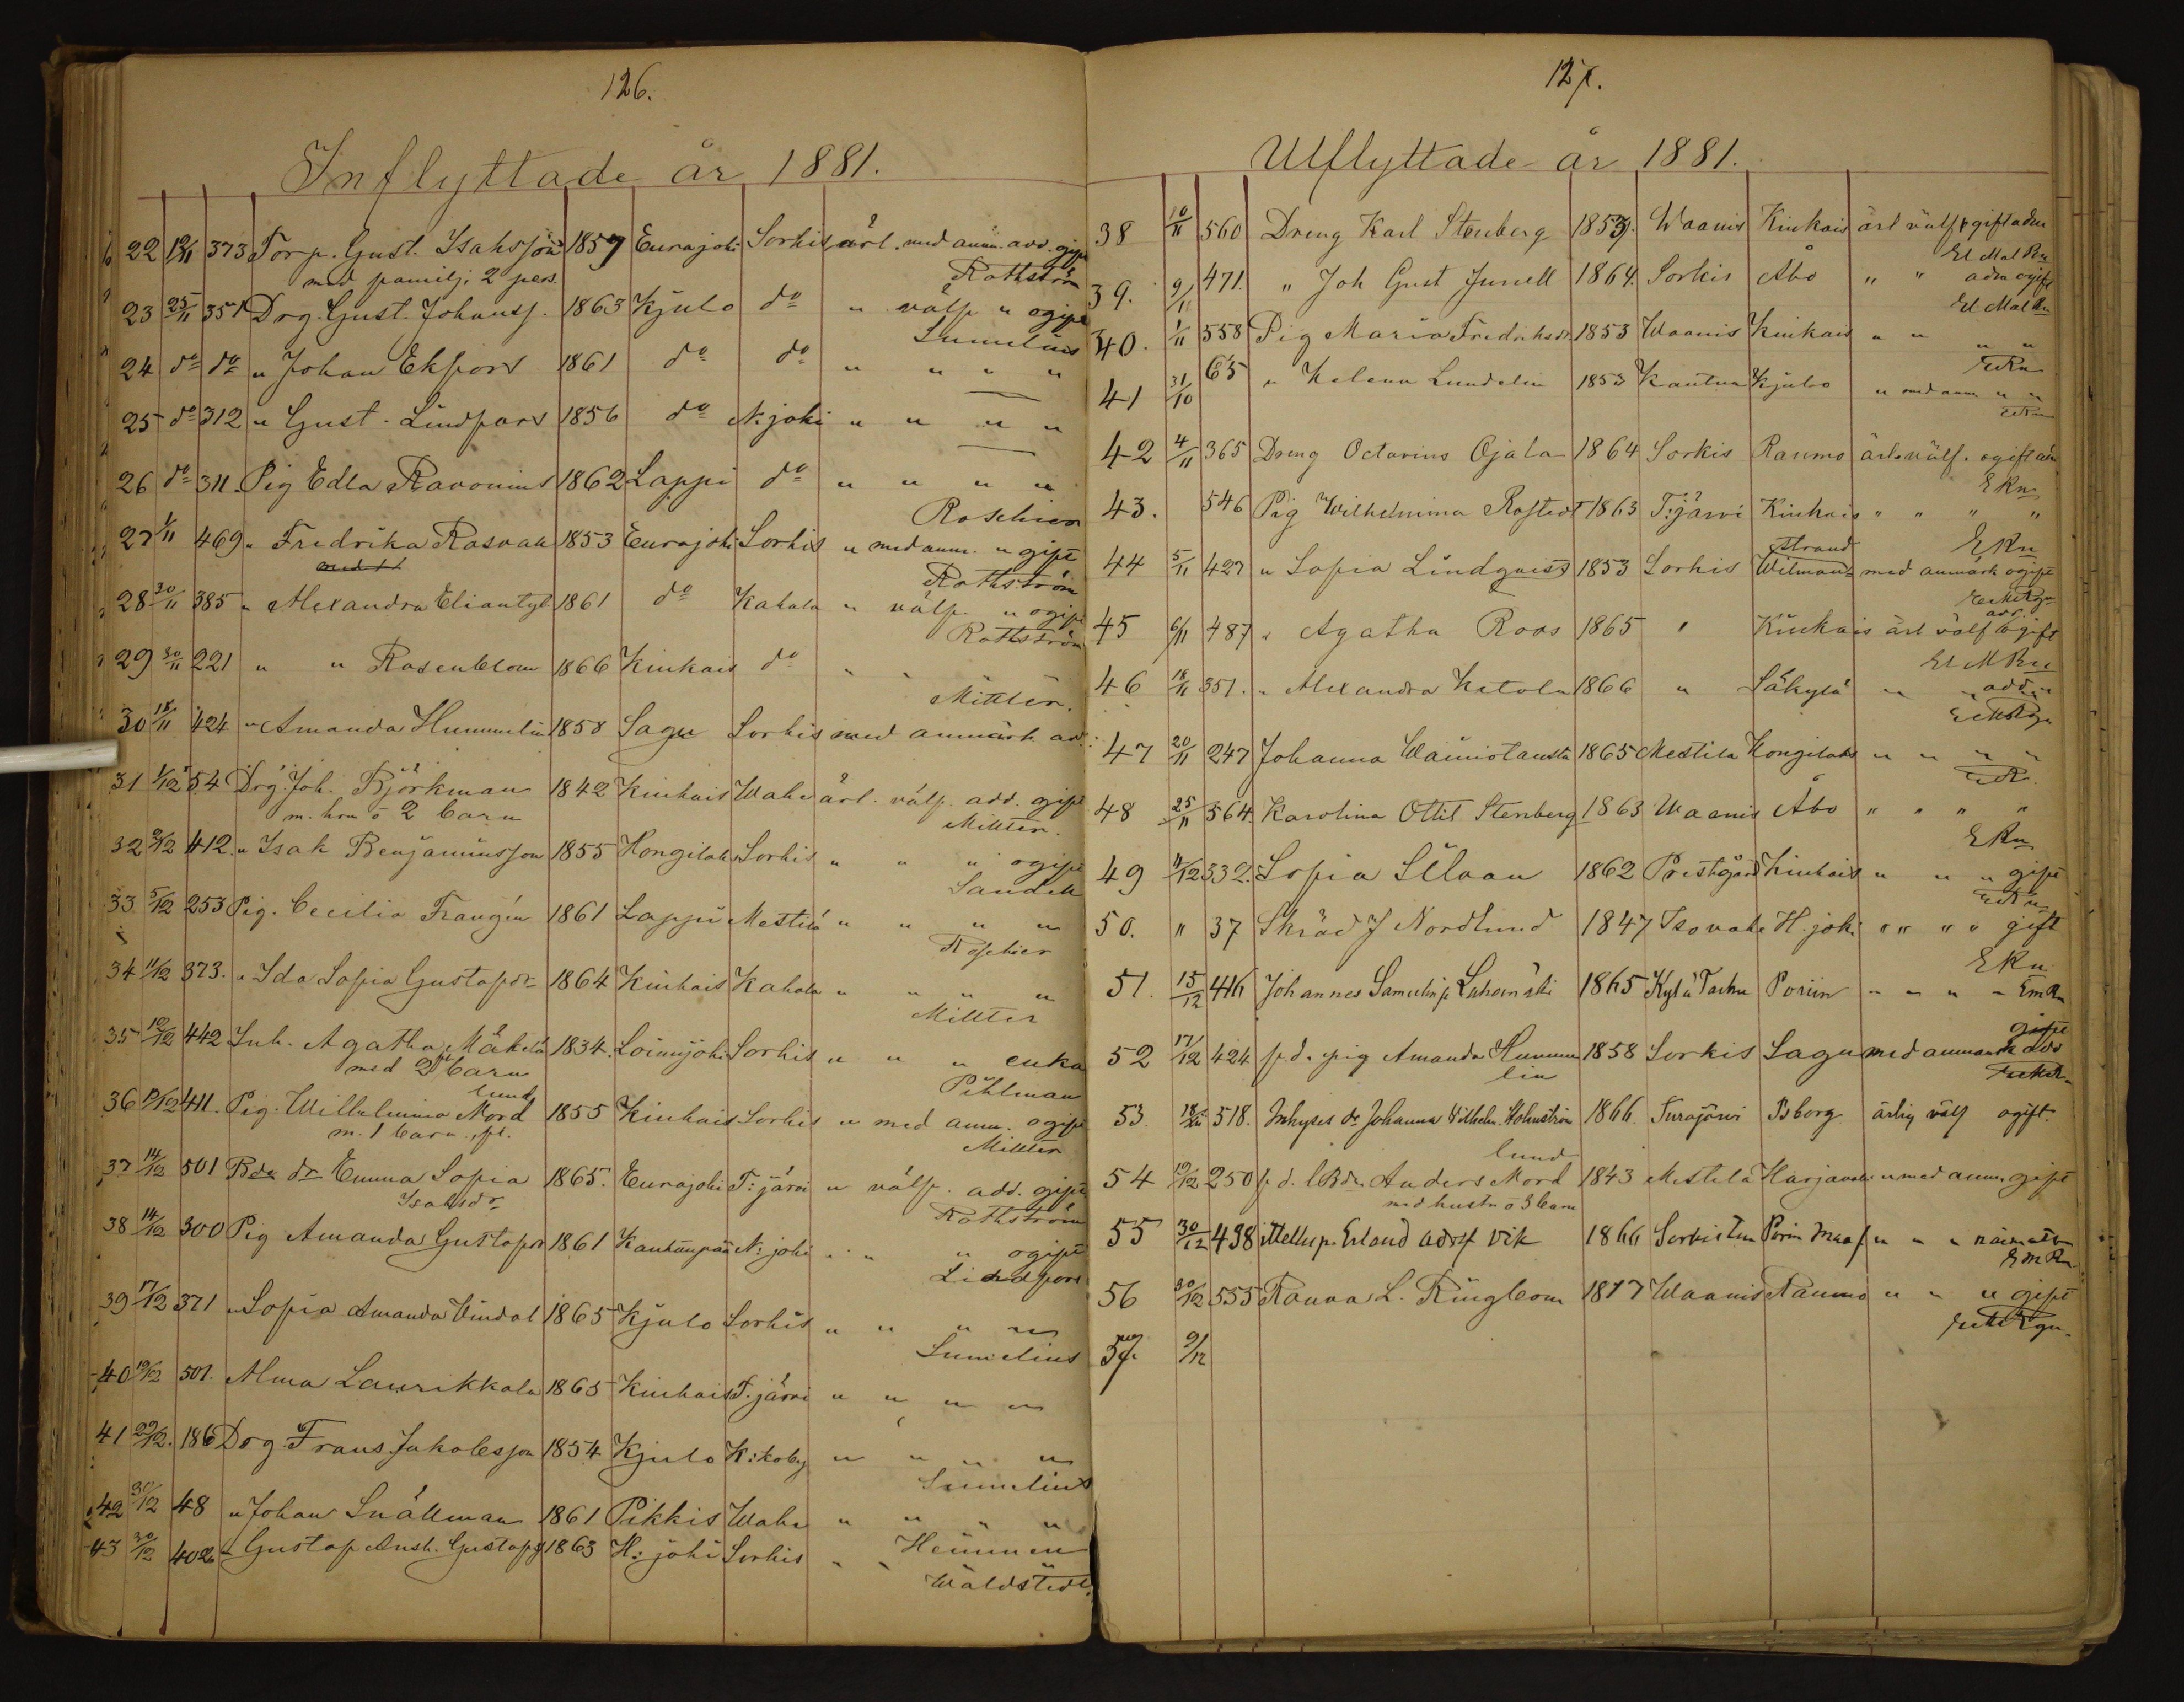 126.
Inflyttade år 1881.
22 12/11 373 Torp. Gust. Isaksson 1857 Eurajoki Sorkis ärl. med anm. adv. gift
med familj; 2 pers. Rothström
23 25/11 351 Drg. Gust. Johanss. 1863 Kjulo do " välf. " ogift
Sumelius
24 do do " Johan Ekfors 1861 do do " " " "
25 do 312 " Gust. Lindfors 1856 do N:joki " " " "
26 do 311. Pig Edla Ravonius 1862 Lappi do " " " "
Roschier
27 1/11 469 " Fredrika Rasvall 1853 Eurajoki Sorkis " med anm. " gift
Rothström
28 30/11 385 " Alexandra 1861 do Kahala " välf. " ogift
Rothström
29 30/11 221 " " Rosenblom 1866 Kiukais do " "
Mittler.
30 18/11 424 " Amanda Hummelin 1858 Sagu Sorkis med anmärk. ad.
31 1/12 54 Drg. Joh. Björkman 1842 Kiukais Wahe ärl. välf. add. gift
m. hru o 2 barn Mittler.
32 2/12 412. " Isak Benjaminsson 1855 Hongilaks Sorkis " " " ogift
Sandell
33 5/12 253 Pig. Cecilia Frangén 1861 Lappi Mestilä " " " "
Roschier
34 11/12 373. " Ida Sofia Gustafsdr 1864 Kiukais Kahala " " " "
Mittler
35 12/12 442 Inh. Agatha Mäkelä 1834. Loimijoki Sorkis " " " enka
med 2 barn Pihlman
lund
36 411. Pig. Willhelmina Nord 1855 Kiukais Sorkis " med anm. ogift
m. 1 barn Mittler
37 14/12 501 Bdr dr Emma Sofia 1865. Eurajoki T:järvi " välf. add. gift
Isaksdr Rothström
38 14/12 300 Pig Amanda Gustafsdr 1861 Kankaanpää N:joki " " " ogift
Lindfors
39 17/12 371 " Sofia Amanda Vindal 1865 Kjulo Sorkis " " " "
Sumelius
40 19/12 501. Alma Laurikkala 1865 Kiukais T.järvi " " " "
41 22/12. 186 Drg. Frans Jakobsson 1854 Kjulo K:koby " " " "
Sumelius
42 30/12 48 " Johan Snällman 1861 Pikkis Wahe " " " "
Heinonen
43 30/12 402 " Gustaf Ansh. Gustafs. 1863 H:joki Sorkis " "
Waldstedt.
127.
Utflyttade år 1881.
38 10/11 560 Dreng Karl Stenberg 1859. Waanis Kiukais ärl välf ogift adm
39. 9/11 471. " Joh Gust Junell 1864. Sorkis Åbo " " adm ogift
40. 1/11 558 Pig Maria Fredriksdr 1853 Waanis Kiukais " " " "
41 31/10 65 " Helena Lundelin 1853 Kauttua Kjulo " med anm " "
42 4/11 365 Dreng Octavius Ojala 1864 Sorkis Raumo ärl. välf. ogift adm
ERn
43. 546 Pig Wilhelmina Rostedt 1863 T:järvi Kiukais " " " "
ERn
strand
44 5/11 427 " Sofia Lindqvist 1853 Sorkis Wilmans med anmärk ogift
45 6/11 487 " Agatha Roos 1865 " Kiukais ärl välf ogift
46 18/11 351. " Alexandra Katola 1866 " Säkylä " " add "
47 20/11 247 Johanna Wainiotausta 1865 Mestila Hongilaks " " " "
48 25/11 564. Karolina Ottil Stenberg 1863 Waanis Åbo " " " "
ERn
49 4/12 332. Sofia Silvan 1862 Prestgård Kiukais " " " gift
50. " 37 Skräd J Nordlund 1847 Isovahe H.joki " " " " gift
ERn
51. 15/12 Johannes Samuelinp 1865 Kylä Porin " " " "
gift
52 17/12 424 f.d. pig Amanda Humme 1858 Sorkis Sagu med anmärk add
lin
53. 18/12 518. Inhyses dr Johanna Vilhelm. Holmström 1866. Turajärvi Isborg ärlig välf ogift.
lund
54 19/12 250 f.d. Anders Nord 1843 Mestilä Harjavalta " med anm. gift
med hustr o 3 barn
55 30/12 438 Erland Vik 1866 Sorkis Porin " " "
56 30/12 555 L. Ringbom 1817 Waanis Raumo " " " gift
57 9/12